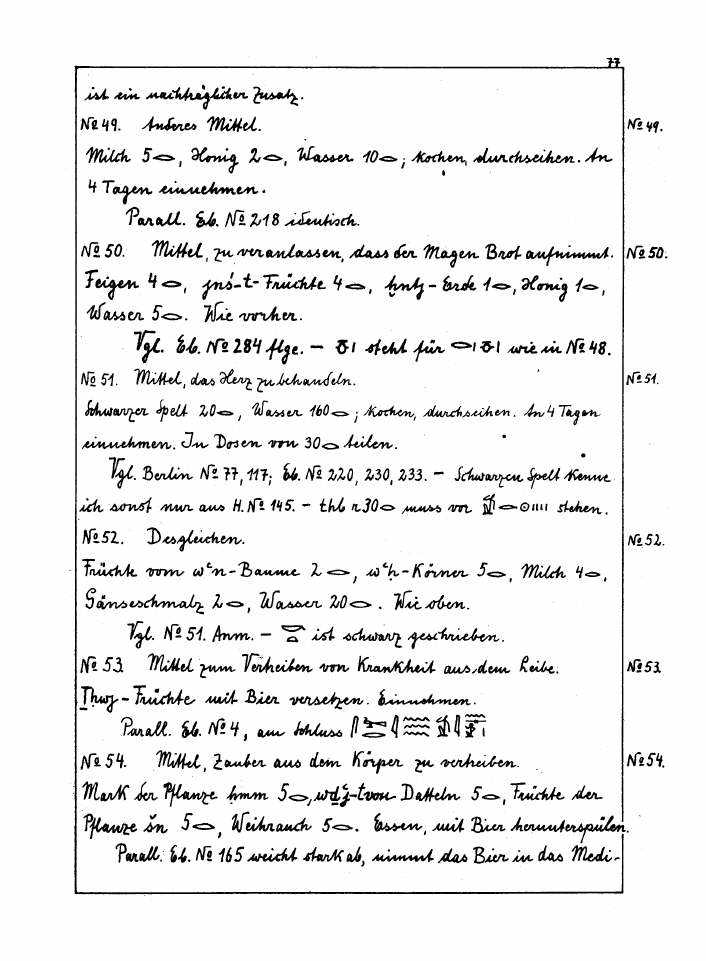 77
ist ein nachträglicher Zusatz.
No 49. Anderes Mittel. No 49.
Milch 5 𓂋, Honig 2 𓂋, Wasser 10 𓂋; kochen, durchseihen. An
4 Tagen einnehmen.
Parall. Eb. No 218 identisch.
No 50. Mittel, zu veranlassen, dass der Magen Brot aufnimmt. No 50.
Feigen 4 𓂋, -t-Früchte 4 𓂋, -Erde 1 𓂋, Honig 1 𓂋,
Wasser 5 𓂋. Wie vorher.
Vgl. Eb. No 284 flge. – steht für wie in No 48.
No 51. Mittel, das Herz zu behandeln. No 51.
Schwarzer Spelt 20 𓂋, Wasser 160 𓂋; kochen, durchseihen. An 4 Tagen
einnehmen. In Dosen von 30 𓂋 teilen.
Vgl. Berlin No 77, 117; Eb. No 220, 230, 233. – Schwarzen Spelt kenne
ich sonst nur aus H. No 145. – thb r 30 𓂋 muss vor stehen.
No 52. Desgleichen. No 52.
Früchte vom wꜥn-Baume 2 𓂋, wꜥḥ-Körner 5 𓂋, Milch 4 𓂋,
Gänseschmalz 2 𓂋, Wasser 20 𓂋. Wie oben.
Vgl. No 51. Anm. – ist schwarz geschrieben.
No 53. Mittel zum Vertreiben von Krankheit aus dem Leibe. No 53.
Ṯḥwj-Früchte mit Bier versetzen. Einnehmen.
Parall. Eb. No 4, am Schluss
No 54. Mittel, Zauber aus dem Körper zu vertreiben. No 54.
Mark der Pflanze ḥmm 5 𓂋, von Datteln 5 𓂋, Früchte der
Pflanze šn 5 𓂋, Weihrauch 5 𓂋. Essen, mit Bier herunterspülen.
Parall. Eb. No 165 weicht stark ab, nimmt das Bier in das Medi-